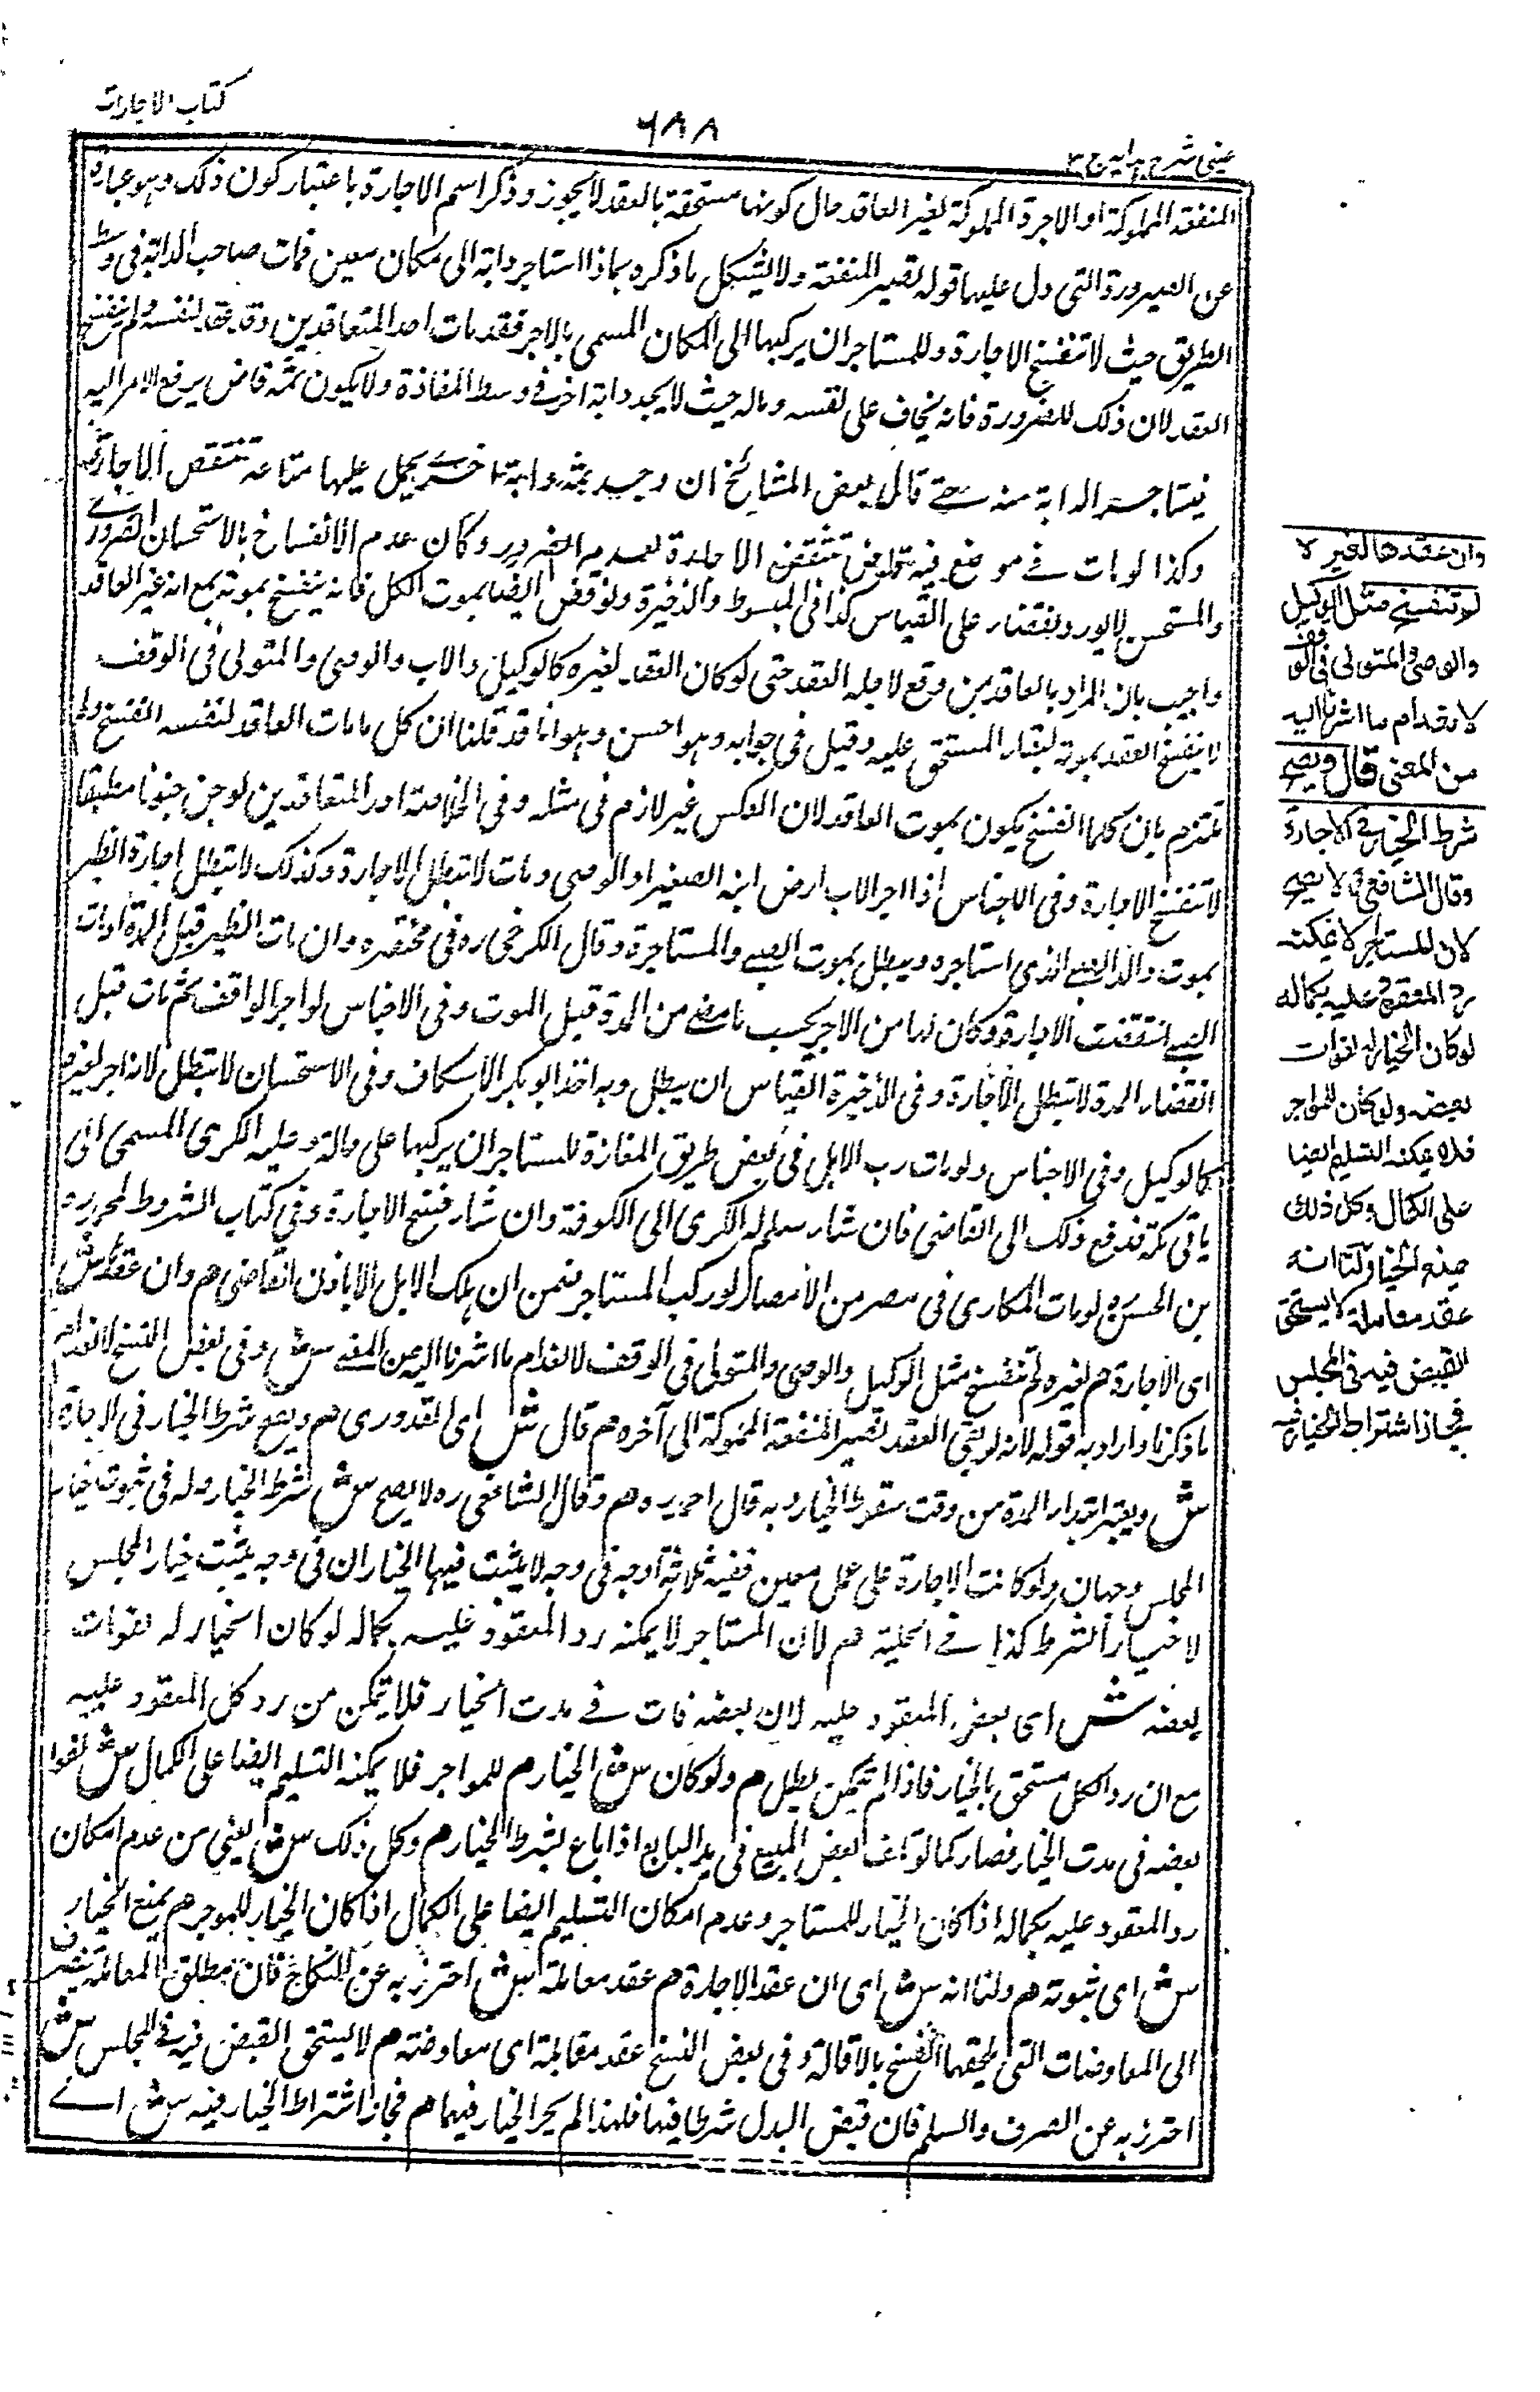 كتاب الاجارات
٦٨٨
عينى شرح هدايه ج ٣
المنفقة المملوكة او الاجرة المملوكة لغير العاقد حال كونها مستحقة بالعقد لا يجوز وذكر اسم الاجارة باعتبار كون ذلك وهو عبارة
عن الصيرورة التى دل عليها قوله لتصير المنفعة ولا يشكل ما ذكره بما اذا استاجر دابة الى مكان معين فمات صاحب الدابة فى وسط
الطريق حيث لا تنفسخ الاجارة وللمستاجر ان يركبها الى المكان المسمى بالاجر فقد مات احد المتعاقدين وقد عقد لنفسه ولم ينفسخ
العقد لان ذلك للضرورة فانه يخاف على نفسه وماله حيث لا يجد دابة اخرى فى وسط المفازة ولا يكون ثمة قاض يرفع الامر اليه
فيستاجر الدابة منه حتے قال بعض المشائخ ان وجد ثمه دابة اخرے يحمل عليها متاعه تنتقض الاجارة
وكذا لو مات فے موضع فيه قاض تنتقض الاجارة لعدم الضرورة وكان عدم الانفساخ بالاستحسان الضرورے
والمستحسن لا يورد نقضا على القياس كذا فى المبسوط والذخيرة ونوقض ايضا بموت الوكيل فانه ينفسخ بموته مع انه غير العاقد
واجيب بان المراد بالعاقد من وقع لاجله العقد حتى لو كان العقد لغيره كالوكيل والاب والوصى والمتولى فى الوقف
لا ينفسخ العقد بموته لبقاء المستحق عليه وقيل فى جوابه وهو احسن وهو انا قد قلنا ان كل ما مات العاقد لنفسه انفسخ ولم
نلتزم بان كلما انفسخ يكون بموت العاقد لان العكس غير لازم فى مثله وفى الخلاصة احد المتعاقدين لو جن جنونا مطبقا
لا تنفسخ الاجارة وفى الاجناس اذا اجر الاب ارض ابنه الصغير او الوصى ومات لا تبطل الاجارة وكذلك لا تبطل اجارة الظئر
بموت والد الصبے الذى استاجره ويبطل بموت الصبے والمستاجرة وقال الكرخى ره فى مختصره وان مات الظئر قبل المدة او مات
الصبے انتقضت الاجارة وكان لها من الاجر بحسب ما مضے من المدة قبل الموت وفى الاجناس لو اجر الواقف ثم مات قبل
انقضاء المدة لا تبطل الاجارة وفى الذخيرة القياس ان يبطل وبه اخذ ابو بكر الاسكاف وفى الاستحسان لا تبطل لانه اجر لغيره
كالوكيل وفى الاجناس ولو مات رب الابل فى بعض طريق المفازة للمستاجر ان يركبها على حاله وعليه الكرى المسمى الى
ياتى مكة فيدفع ذلك الى القاضى فان شاء سلم له الكرى الى الكوفة وان شاء فسخ الاجارة وفى كتاب الشروط لمحمد
بن الحسن ره لو مات المكارى فى مصر من الامصار لو ركب المستاجر ضمن ان هلك الابل الا باذن القاضى هم وان عقدها ش
اى الاجارة هم لغيره لم تنفسخ مثل الوكيل والوصى والمتولى فى الوقف لانعدام ما اشرنا اليه من المعنے ش وفى بعض النسخ لانعدام
ما ذكرنا واراد به قوله لانه لو بقى العقد تصير المنفعة المملوكة الى آخره هم قال ش اى القدورى هم ويصح شرط الخيار فى الاجارة
ش ويعتبر ابتداء المدة من وقت سقوط الخيار وبه قال احمد ره هم وقال الشافعى ره لا يصح ش شرط الخيار وله فى ثبوت خيار
المجلس وجهان ولو كانت الاجارة على عمل معين ففيه ثلاثة اوجه فى وجه لا يثبت فيها الخياران فى وجه يثبت خيار المجلس
لا خيار الشرط كذا فے الحلية هم لان المستاجر لا يمكنه رد المعقود عليه بكماله لو كان الخيار له لفوات
بعضه ش اى بعض المعقود عليه لان بعضه فات فے مدت الخيار فلا يتمكن من رد كل المعقود عليه
مع ان رد الكل مستحق بالخيار فاذا لم يتمكن بطل هم ولو كان ش الخيار م للمواجر فلا يمكنه التسليم ايضا على الكمال ش لفوات
بعضه فى مدت الخيار فصار كما لو تلف بعض المبيع فى يد البايع اذا باع بشرط الخيار م وكل ذلك ش يعنى من عدم امكان
رد المعقود عليه بكماله اذا كان الخيار للمستاجر وعدم امكان التسليم ايضا على الكمال اذا كان الخيار للموجر هم يمنع الخيار
ش اى ثبوته هم ولنا انه ش اى ان عقد الاجارة هم عقد معاملة ش احترز به عن النكاح فان مطلق المعاملة ينصرف
الى المعاوضات التى يلحقها الفسخ بالاقالة وفى بعض النسخ عقد مقابلة اى معاوضة هم لا يستحق القبض فيه فے المجلس ش
احترز به عن الصرف والسلم فان قبض البدل شرط فيها فلهذا لم يجز الخيار فيهما هم فجاز اشتراط الخيار فيه ش اے
وان عقدها لغيره لا
لم تنفسخ مثل الوكيل
والوصى والمتولى فى الوقف
لانعدام ما اشرنا اليه
من المعنى قال ويصح
شرط الخيار فى الاجارة
وقال الشافعى لا يصح
لان المستاجر لا يمكنه
رد المعقود عليه بكماله
لو كان الخيار له لفوات
بعضه ولو كان للمواجر
فلا يمكنه التسليم ايضا
على الكمال وكل ذلك
يمنع الخيار ولنا انه
عقد معاملة لا يستحق
القبض فيه فى المجلس
فجاز اشتراط الخيار فيه